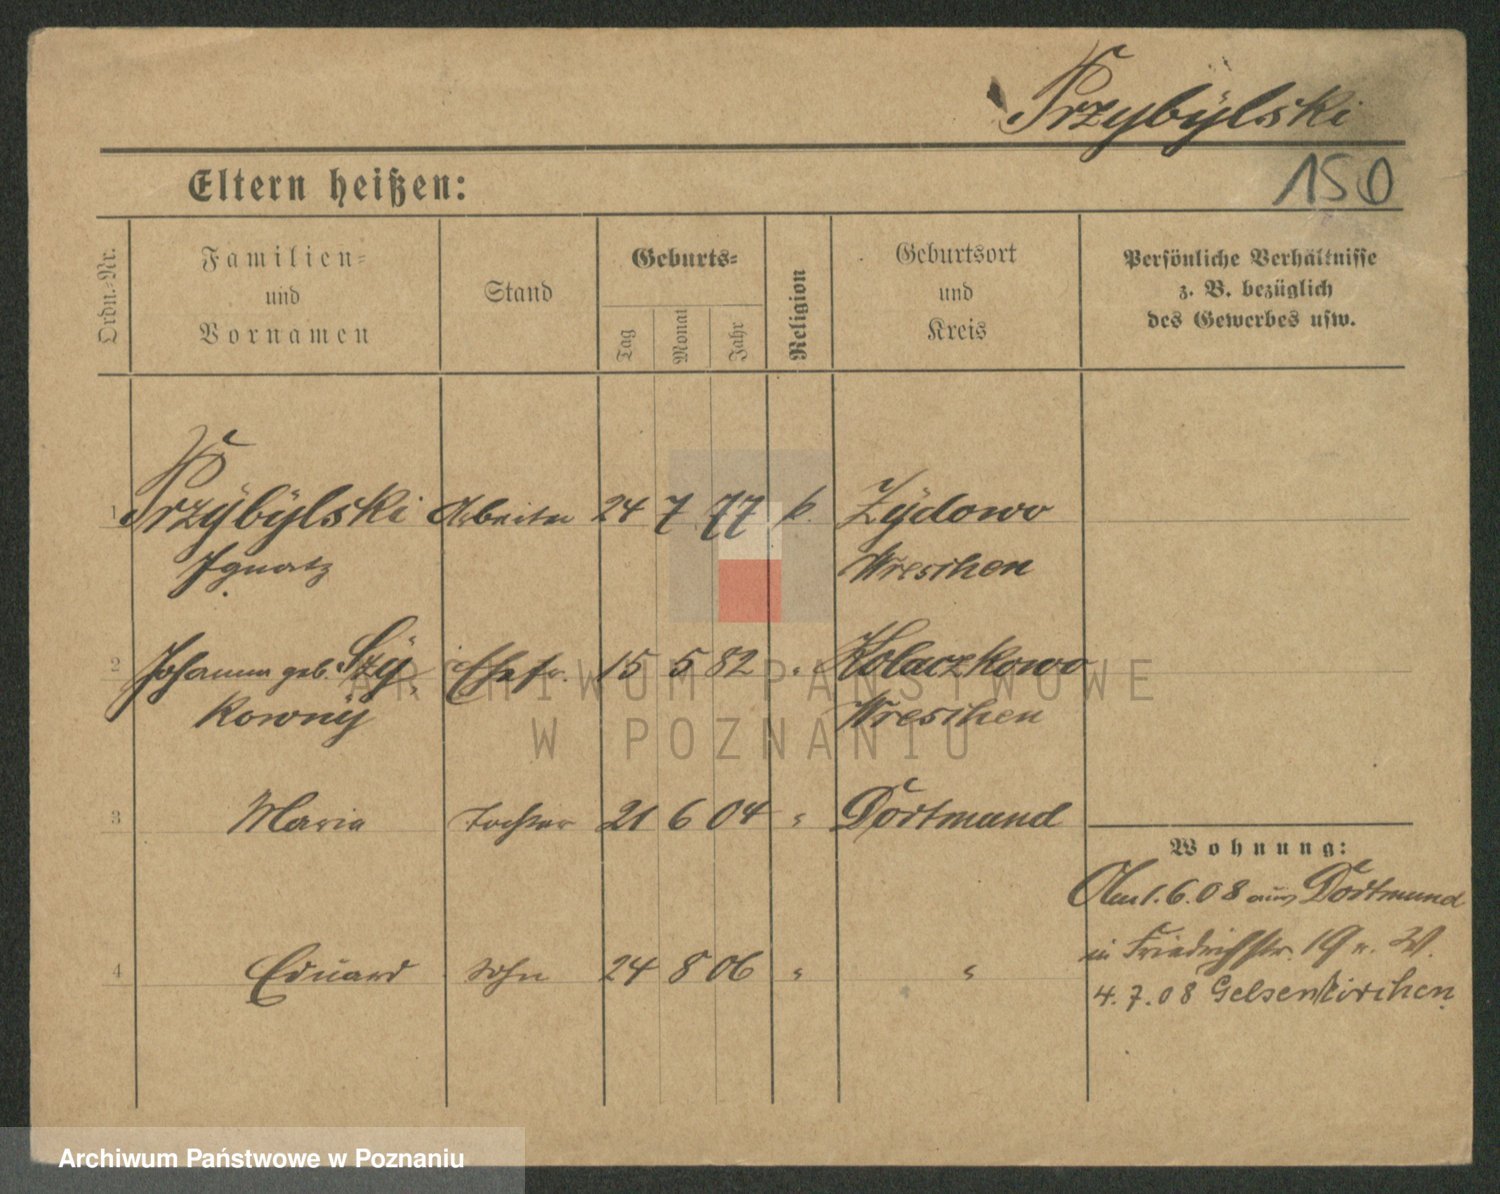 Przybÿlski
150
Eltern heißen:
Ordn.-Nr.
Familien-
und
Vornamen
Stand
Geburts-
Tag
Monat
Jahr
Religion
Geburtsort
und
Kreis
Persönliche Verhältnisse
z. B. bezüglich
des Gewerbes usw.
1 Przÿbÿlski Arbeiter 24 7 77 k. Zÿdowo
Ignatz Wreschen
2 Johanna geb. Szÿ- Ehefr. 15 5 82 " Kolaczkowo
kownÿ Wreschen
3 Maria Tochter 21 6 04 " Dortmund
4 Eduard Sohn 24 8 06 " "
Wohnung:
Am 1.6.08 aus Dortmund
in Friedrichstr. 19 n. W.
4.7.08 Gelsenkirchen
ARCHIWUM PAŃSTWOWE
W POZNANIU
Archiwum Państwowe w Poznaniu